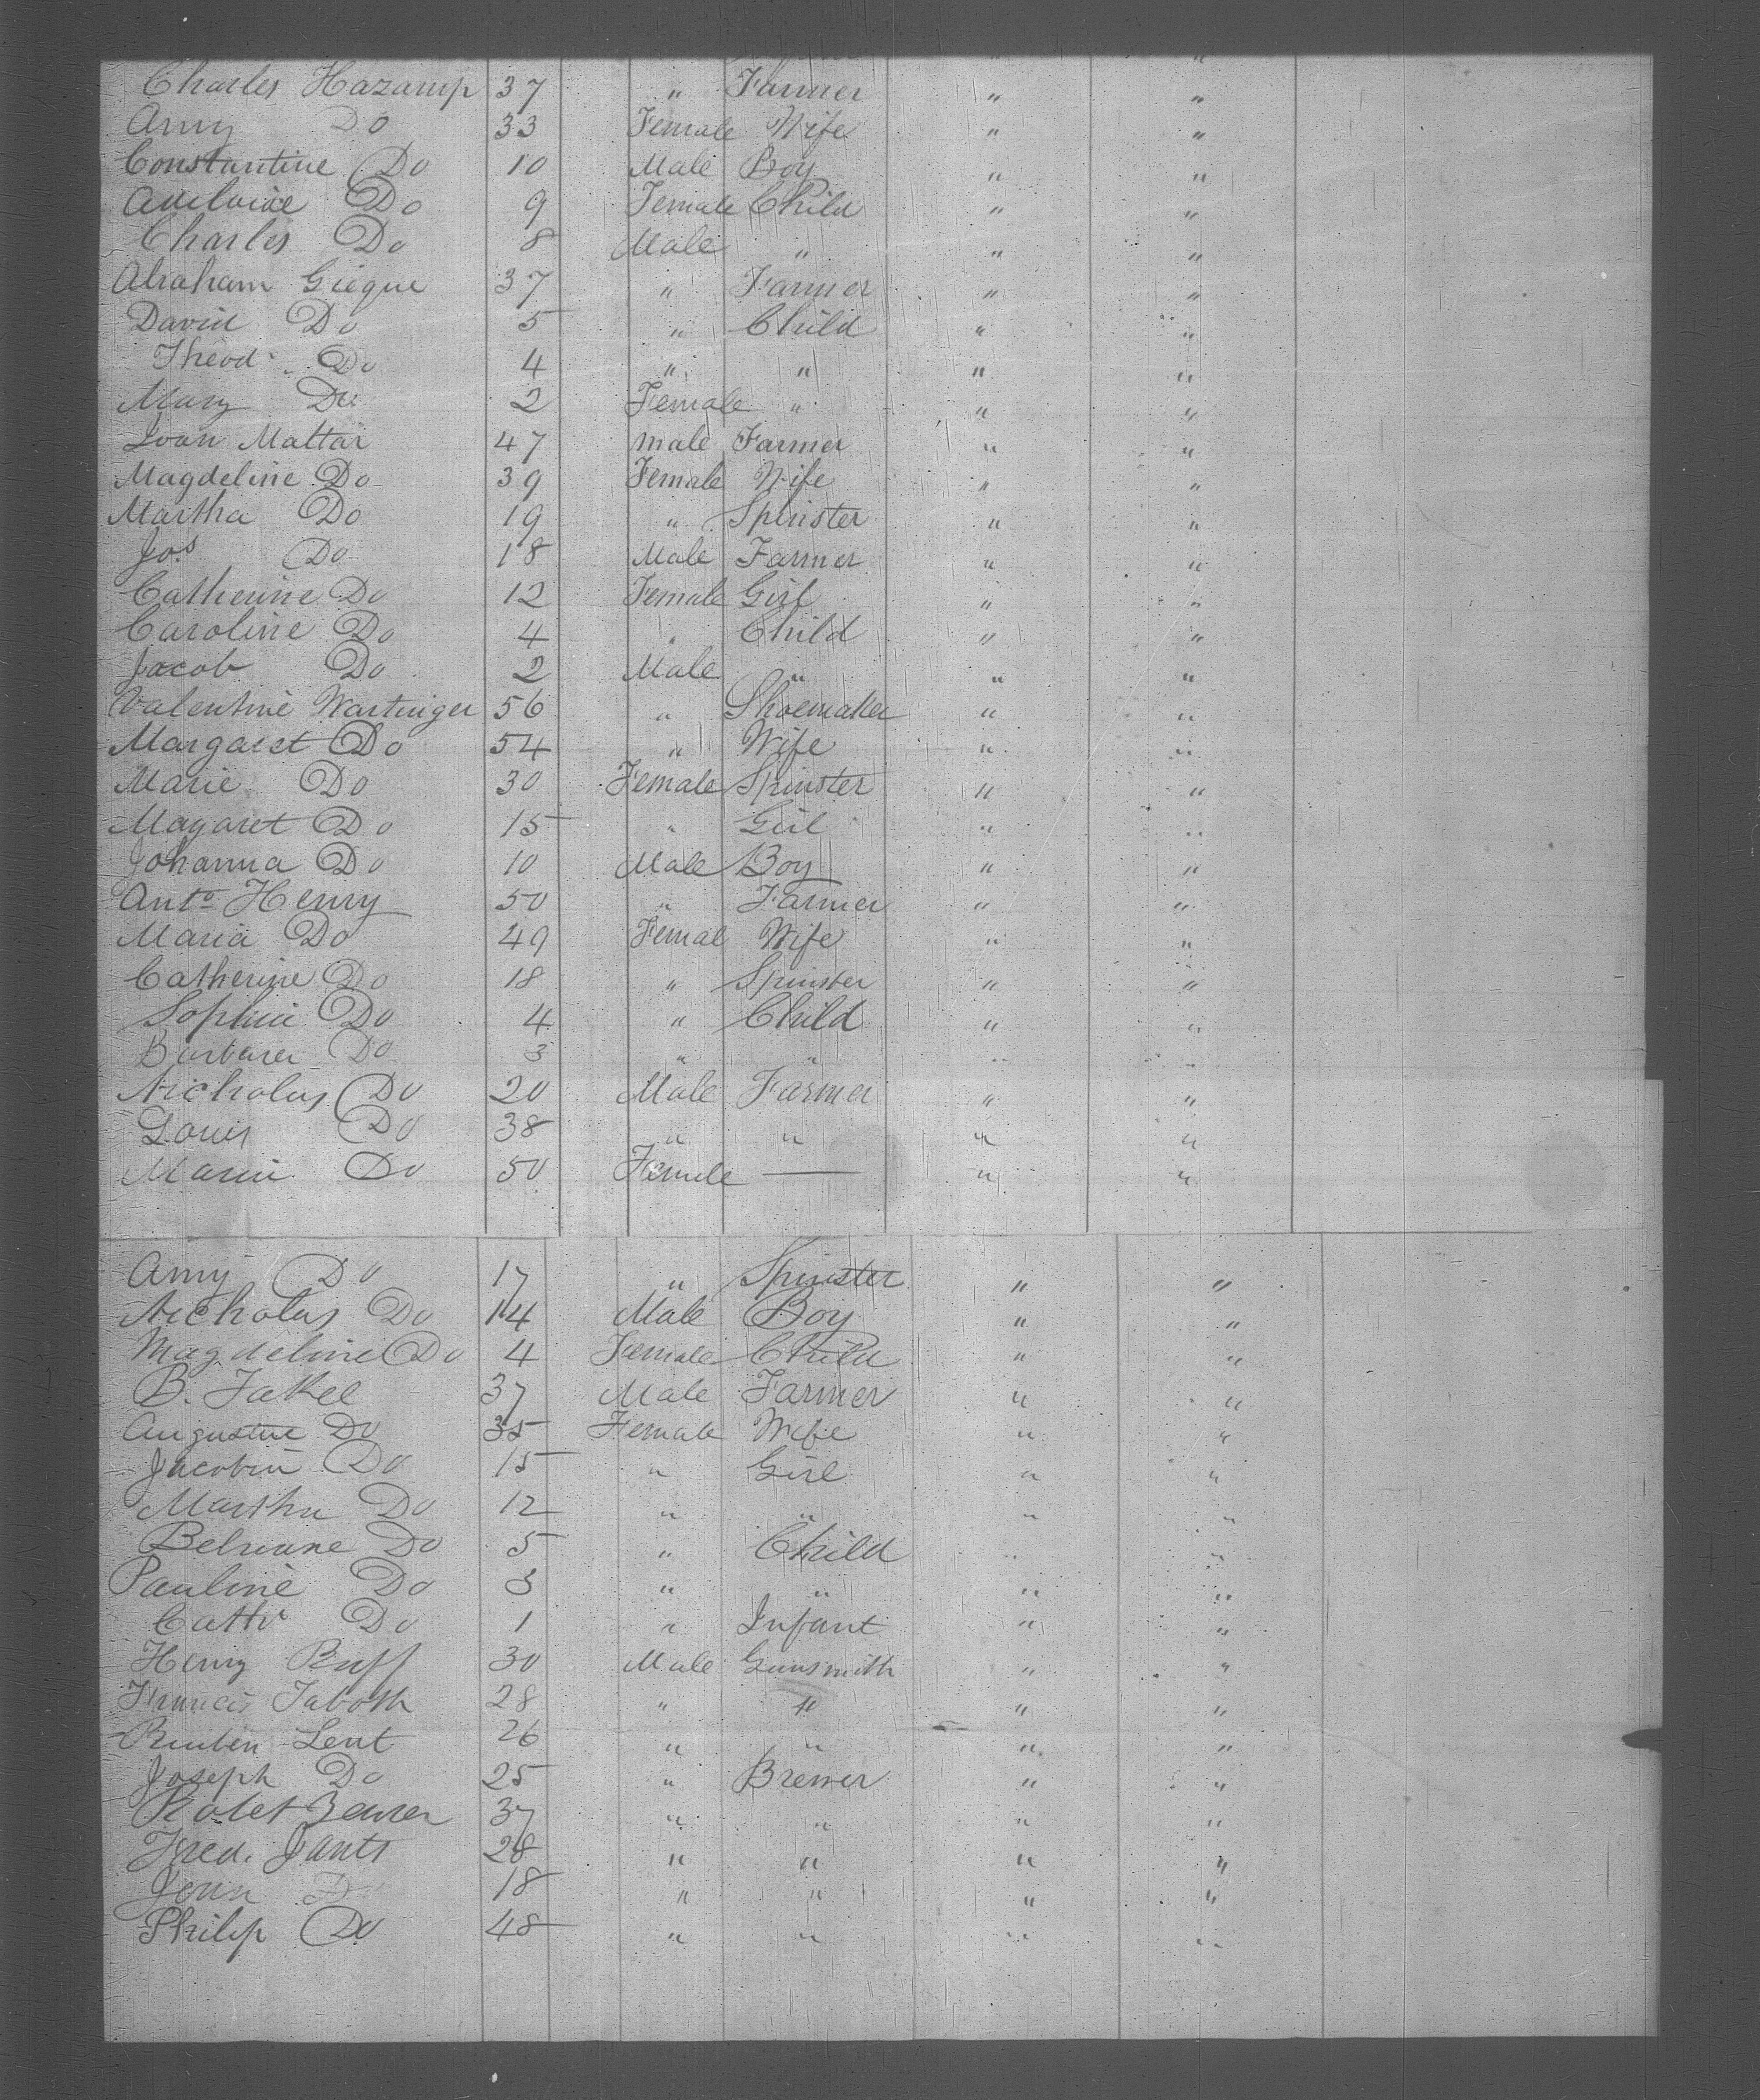 Charles Hazamp 37 " Farmer " "
Amy Do 33 Female Wife " "
Constantine Do 10 Male Boy " "
Adeloide Do 9 Female Child " "
Charles Do 8 Male " " "
Abraham Gieque 37 " Farmer " "
David Do 5 " Child " "
Theod. Do 4 " " " "
Mary Do 2 Female " " "
Ivan Mattar 47 male Farmer " "
Magdeline Do 39 Female Wife " "
Martha Do 19 " Spinster " "
Jos Do 18 Male Farmer " "
Catherine Do 12 Female Girl " "
Caroline Do 4 " Child " "
Jacob Do 2 Male " " "
Valentine Wartinger 56 " Shoemaker " "
Margaret Do 54 " Wife " "
Marie Do 30 Female Spinster " "
Magaret Do 15 " Girl " "
Johanna Do 10 Male Boy " "
Anto Henry 50 " Farmer " "
Maria Do 49 Femal Wife " "
Catherine Do 18 " Spinster " "
Sophia Do 4 " Child " "
Barbara Do 3 " " " "
Nicholas Do 20 Male Farmer " "
Louis Do 38 " " " "
Maria Do 50 Female — " "
Amy Do 17 " Spinster " "
Nicholas Do 14 Male Boy " "
Magdeline Do 4 Female Child " "
B. Jakel 37 Male Farmer " "
Augustine Do 35 Female Wife " "
Jacobin Do 15 " Girl " "
Martha Do 12 " " " "
Do 5 " Child " "
Pauline Do 3 " " " "
Do 1 " Infant " "
Henry Ruff 30 Male Gunsmith " "
Francis Taboth 28 " " " "
Reuben Lent 26 " " " "
Joseph Do 25 " Brewer " "
37 " " " "
Fred. Jants 28 " " " "
John Do 18 " " " "
Philip Do 48 " " " "